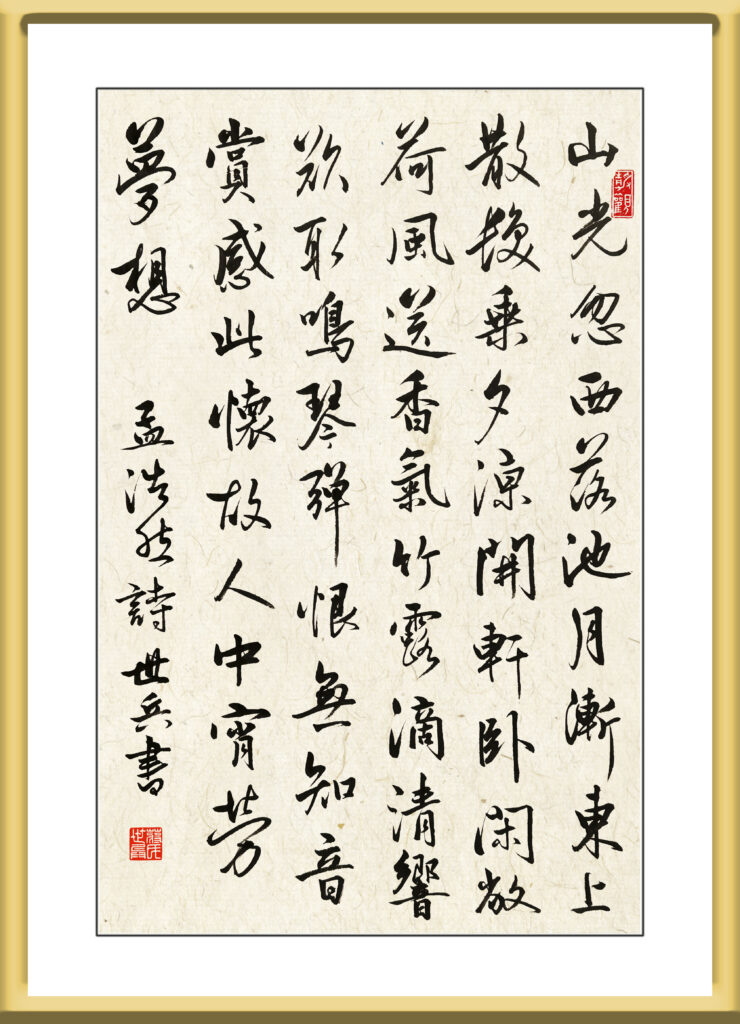 山光忽西落池月漸東上
散髮乘夕涼開軒卧閑敞
荷風送香氣竹露滴清響
欲取鳴琴彈恨無知音
賞感此懷故人中宵勞
夢想 孟浩然詩世兵書